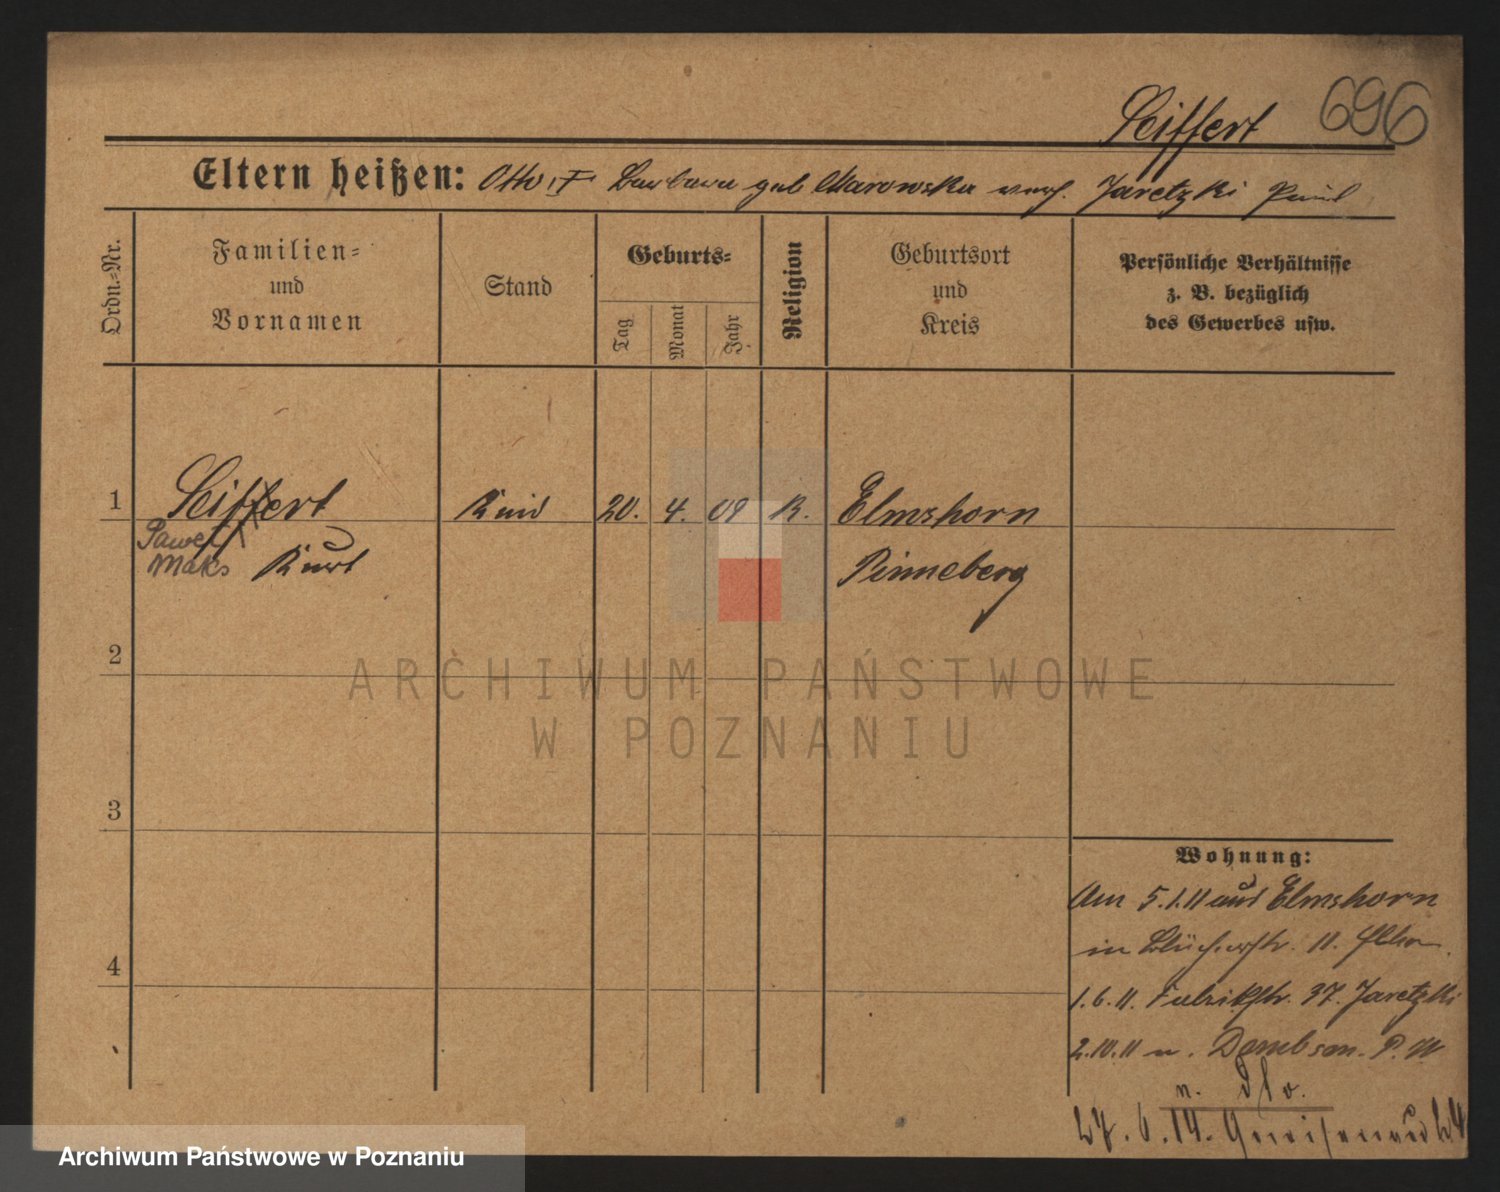 Seiffert 696
Eltern heißen: Otto, F. Barbara geb Marowska verh. Jaretzki Paul
Ordn.=Nr.
Familien=
und
Vornamen
Stand
Geburts=
Tag
Monat
Jahr
Religion
Geburtsort
und
Kreis
Persönliche Verhältnisse
z. B. bezüglich
des Gewerbes usw.
1 Seiffert Kind 20. 4. 09 K. Elmshorn
Paweł
Maks Kurt Pinneberg
2
ARCHIWUM PAŃSTWOWE
W POZNANIU
3
Wohnung:
Am 5.1.11 aus Elmshorn
in Blücherstr. 11.
4
1.6.11. Fabrikstr. 37. Jaretzki
2.10.11 n. Dembsen.
n.
27.6.14. Gneisenaustr
Archiwum Państwowe w Poznaniu